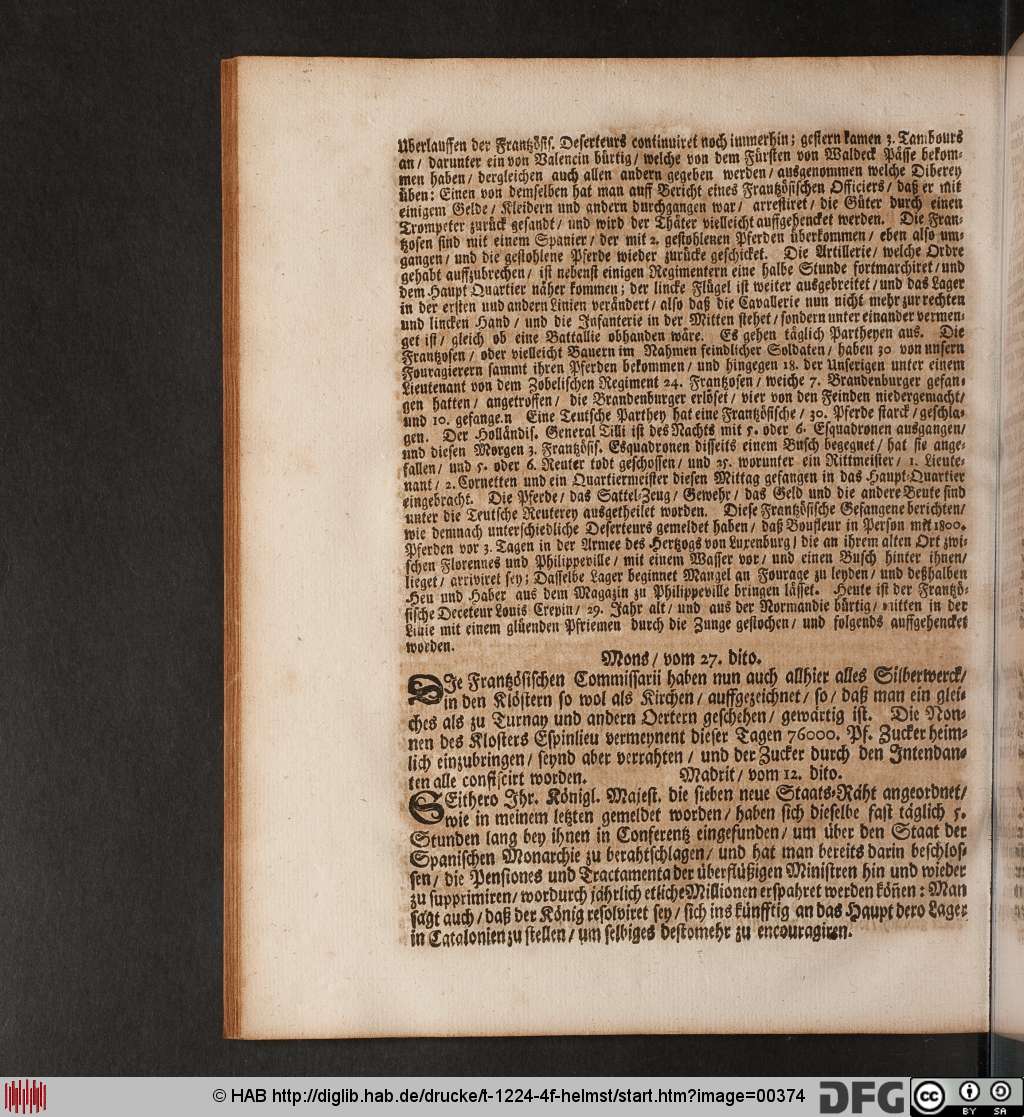 Uberlauffen der Frantzösis. Deserteurs continuiret noch immerhin; gestern kamen 3. Tambours
an / darunter ein von Valencin bürtig / welche von dem Fürsten von Waldeck Pässe bekom-
men haben / dergleichen auch allen andern gegeben werden / ausgenommen welche Diberey
üben: Einen von demselben hat man auff Bericht eines Frantzösischen Officiers / daß er mit
einigem Gelde / Kleidern und andern durchgangen war / arrestiret / die Güter durch einen
Trompeter zurück gesandt / und wird der Thäter vielleicht auffgehencket werden. Die Fran-
tzosen sind mit einem Spanier / der mit 2. gestohlenen Pferden überkommen / eben also um-
gangen / und die gestohlene Pferde wieder zurücke geschicket. Die Artillerie / welche Ordre
gehabt auffzubrechen / ist nebenst einigen Regimentern eine halbe Stunde fortmarchiret / und
dem Haupt Quartier näher kommen; der lincke Flügel ist weiter ausgebreitet / und das Lager
in der ersten und andern Linien verändert / also daß die Cavallerie nun nicht mehr zur rechten
und lincken Hand / und die Infanterie in der Mitten stehet / sondern unter einander vermen-
get ist / gleich ob eine Battallie obhanden wäre. Es gehen täglich Partheyen aus. Die
Frantzosen / oder vielleicht Bauern im Nahmen feindlicher Soldaten / haben 30 von unsern
Fouragierern sammt ihren Pferden bekommen / und hingegen 18. der Unserigen unter einem
Lieutenant von dem Zobelischen Regiment 24. Frantzosen / welche 7. Brandenburger gefan-
gen hatten / angetroffen / die Brandenburger erlöset / vier von den Feinden niedergemacht /
und 10. gefange.n Eine Teutsche Parthey hat eine Frantzösische / 30. Pferde starck / geschla-
gen. Der Holländis. General Tilli ist des Nachts mit 5. oder 6. Esquadronen ausgangen /
und diesen Morgen 3. Frantzösis. Esquadronen disseits einem Busch begegnet / hat sie ange-
fallen / und 5. oder 6. Reuter todt geschossen / und 25. worunter ein Rittmeister / 1. Lieute-
nant / 2. Cornetten und ein Quartiermeister diesen Mittag gefangen in das Haupt-Quartier
eingebracht. Die Pferde / das Sattel-Zeug / Gewehr / das Geld und die andere Beute sind
unter die Teutsche Reuterey ausgetheilet worden. Diese Frantzösische Gefangene berichten /
wie demnach unterschiedliche Deserteurs gemeldet haben / daß Boufleur in Person mit 1800.
Pferden vor 3. Tagen in der Armee des Hertzogs von Luxenburg / die an ihrem alten Ort zwi-
schen Florennes und Philippeville / mit einem Wasser vor / und einen Busch hinter ihnen /
lieget / arriviret sey; Dasselbe Lager beginnet Mangel an Fourage zu leyden / und deßhalben
Heu und Haber aus dem Magazin zu Philippeville bringen lässet. Heute ist der Frantzö-
sische Deceteur Louis Crepin / 29. Jahr alt / und aus der Normandie bürtig / mitten in der
Linie mit einem glüenden Pfriemen durch die Zunge gestochen / und folgends auffgehencket
worden.
Mons / vom 27. dito.
DIe Frantzösischen Commissarii haben nun auch allhier alles Silberwerck /
in den Klöstern so wol als Kirchen / auffgezeichnet / so / daß man ein glei-
ches als zu Turnay und andern Oertern geschehen / gewärtig ist. Die Non-
nen des Klosters Espinlieu vermeynent dieser Tagen 76000. Pf. Zucker heim-
lich einzubringen / seynd aber verrahten / und der Zucker durch den Intendan-
ten alle confisciret worden. Madrit / vom 12. dito.
SEithero Ihr. Königl. Majest. die sieben neue Staats-Räht angeordnet /
wie in meinem letzten gemeldet worden / haben sich dieselbe fast täglich 5.
Stunden lang bey ihnen in Conferentz eingefunden / um über den Staat der
Spanischen Monarchie zu berahtschlagen / und hat man bereits darin beschlos-
sen / die Pensiones und Tractamenta der überflüßigen Ministren hin und wieder
zu supprimiren / wordurch jährlich etliche Millionen erspahret werden köñen: Man
sagt auch / daß der König resolviret sey / sich ins künfftig an das Haupt dero Lager
in Catalonien zu stellen / um selbiges destomehr zu encouragiren.
© HAB http://diglib.hab.de/drucke/t-1224-4f-helmst/start.htm?image=00374
DFG
cc
BY SA